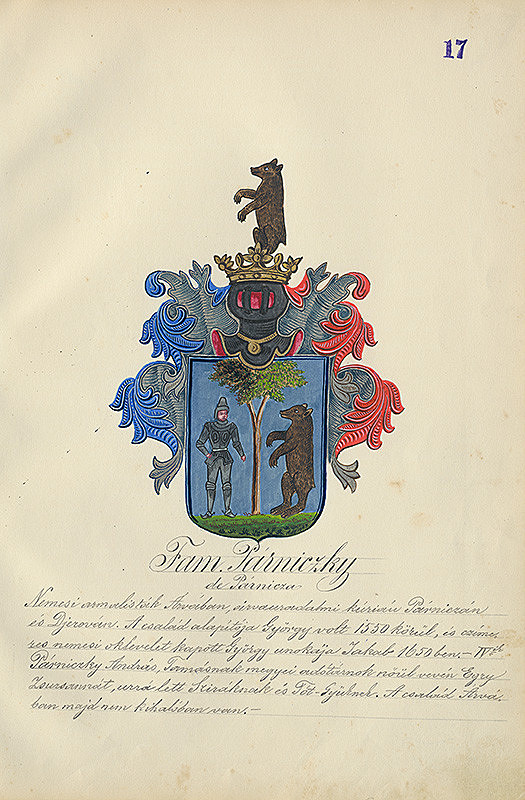 17
Fam. Párniczky
de Párnicza
Nemesi armalisták Árvában, árvauradalmi kúriáu Párniczán
és Djerován. A család alapítója György volt 1550 körül, és czíme-
res nemesi oklevelet kapott György unokája Jakab 1650 ben. — IV
Párniczky András, Tamásnak megyei adótárnok nőül vevén
Zsuzsannát, urra lett Sziráknak és Tót-Győrknek. A család Árvá-
ban majd nem kihalóban van. —